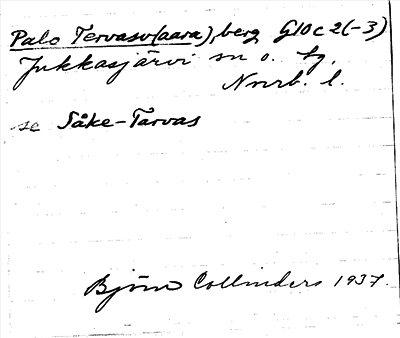 Palo Tervasv(aara), berg G10c2(-3)
Jukkasjärvi sn o. tg.
Norrb. l.
se Såke-Tårvas
Björn Collinders 1937.